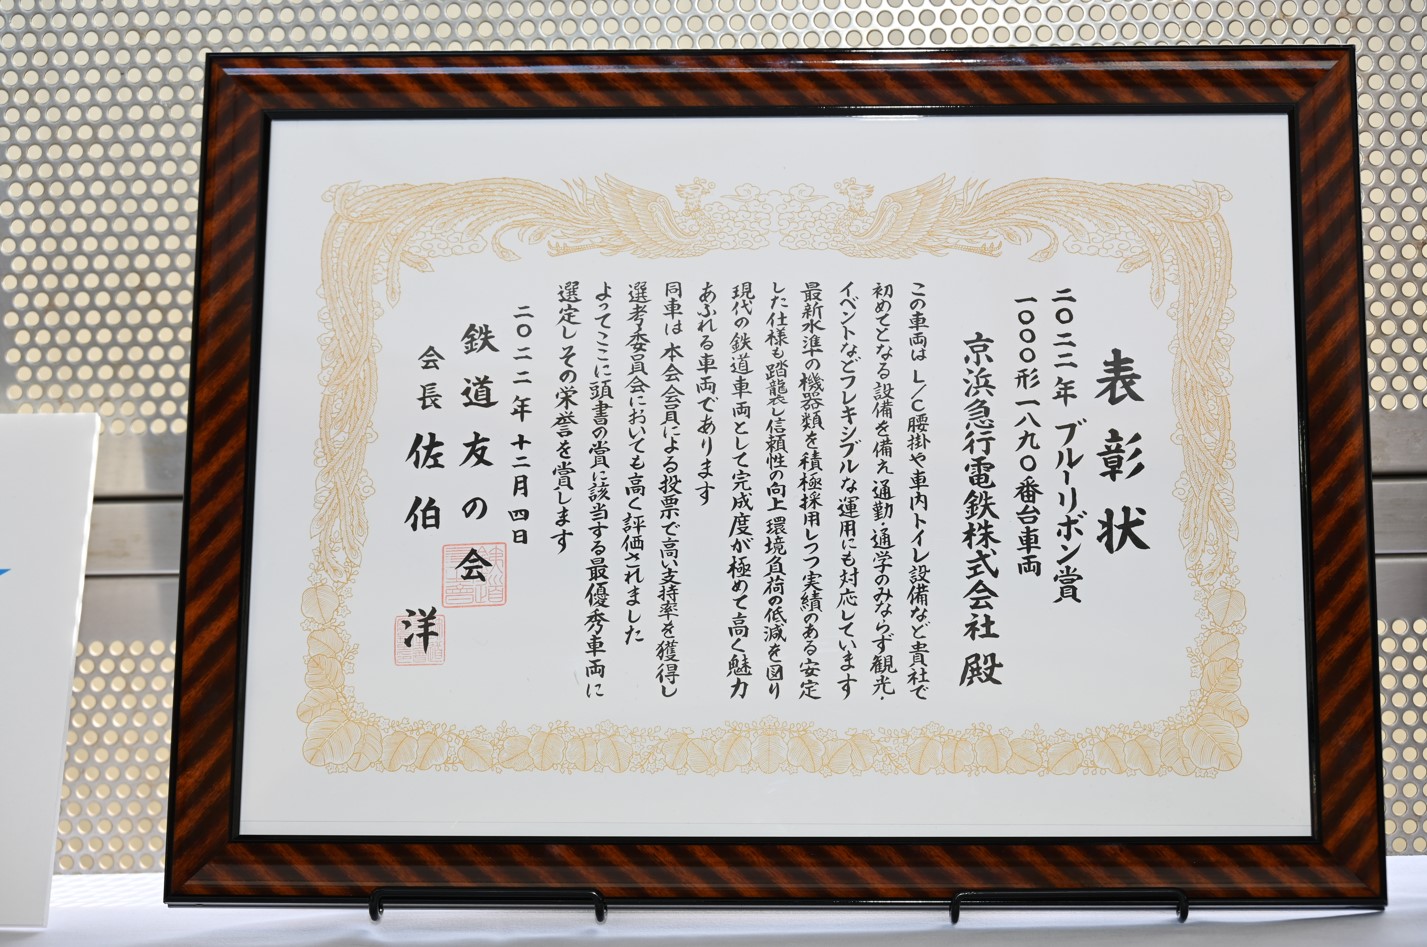 表彰状
二〇二二年 ブルーリボン賞
一〇〇〇形一八九〇番台車両
京浜急行電鉄株式会社 殿
この車両は L/C腰掛や車内トイレ設備など貴社で
初めてとなる設備を備え 通勤・通学のみならず観光・
イベントなどフレキシブルな運用にも対応しています
最新水準の機器類を積極採用しつつ 実績のある安定
した仕様も踏襲し信頼性の向上 環境負荷の低減を図り
現代の鉄道車両として完成度が極めて高く魅力
あふれる車両であります
同車は 本会会員による投票で高い支持率を獲得し
選考委員会においても高く評価されました
よってここに頭書の賞に該当する最優秀車両に
選定し その栄誉を賞します
二〇二二年 十二月 四日
鉄道友の会
会長 佐伯 洋